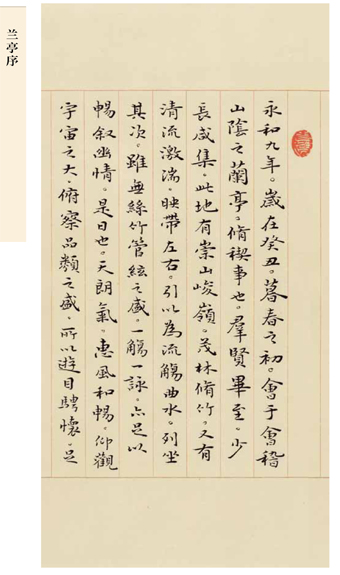 永和九年。歲在癸丑。暮春之初。會于會稽
山陰之蘭亭。脩禊事也。羣賢畢至。少
長咸集。此地有崇山峻嶺。茂林脩竹。又有
清流激湍。映帶左右。引以為流觴曲水。列坐
其次。雖無絲竹管絃之盛。一觴一詠。亦足以
暢叙幽情。是日也。天朗氣。惠風和暢。仰觀
宇宙之大。俯察品類之盛。所以遊目騁懷。足
兰亭序